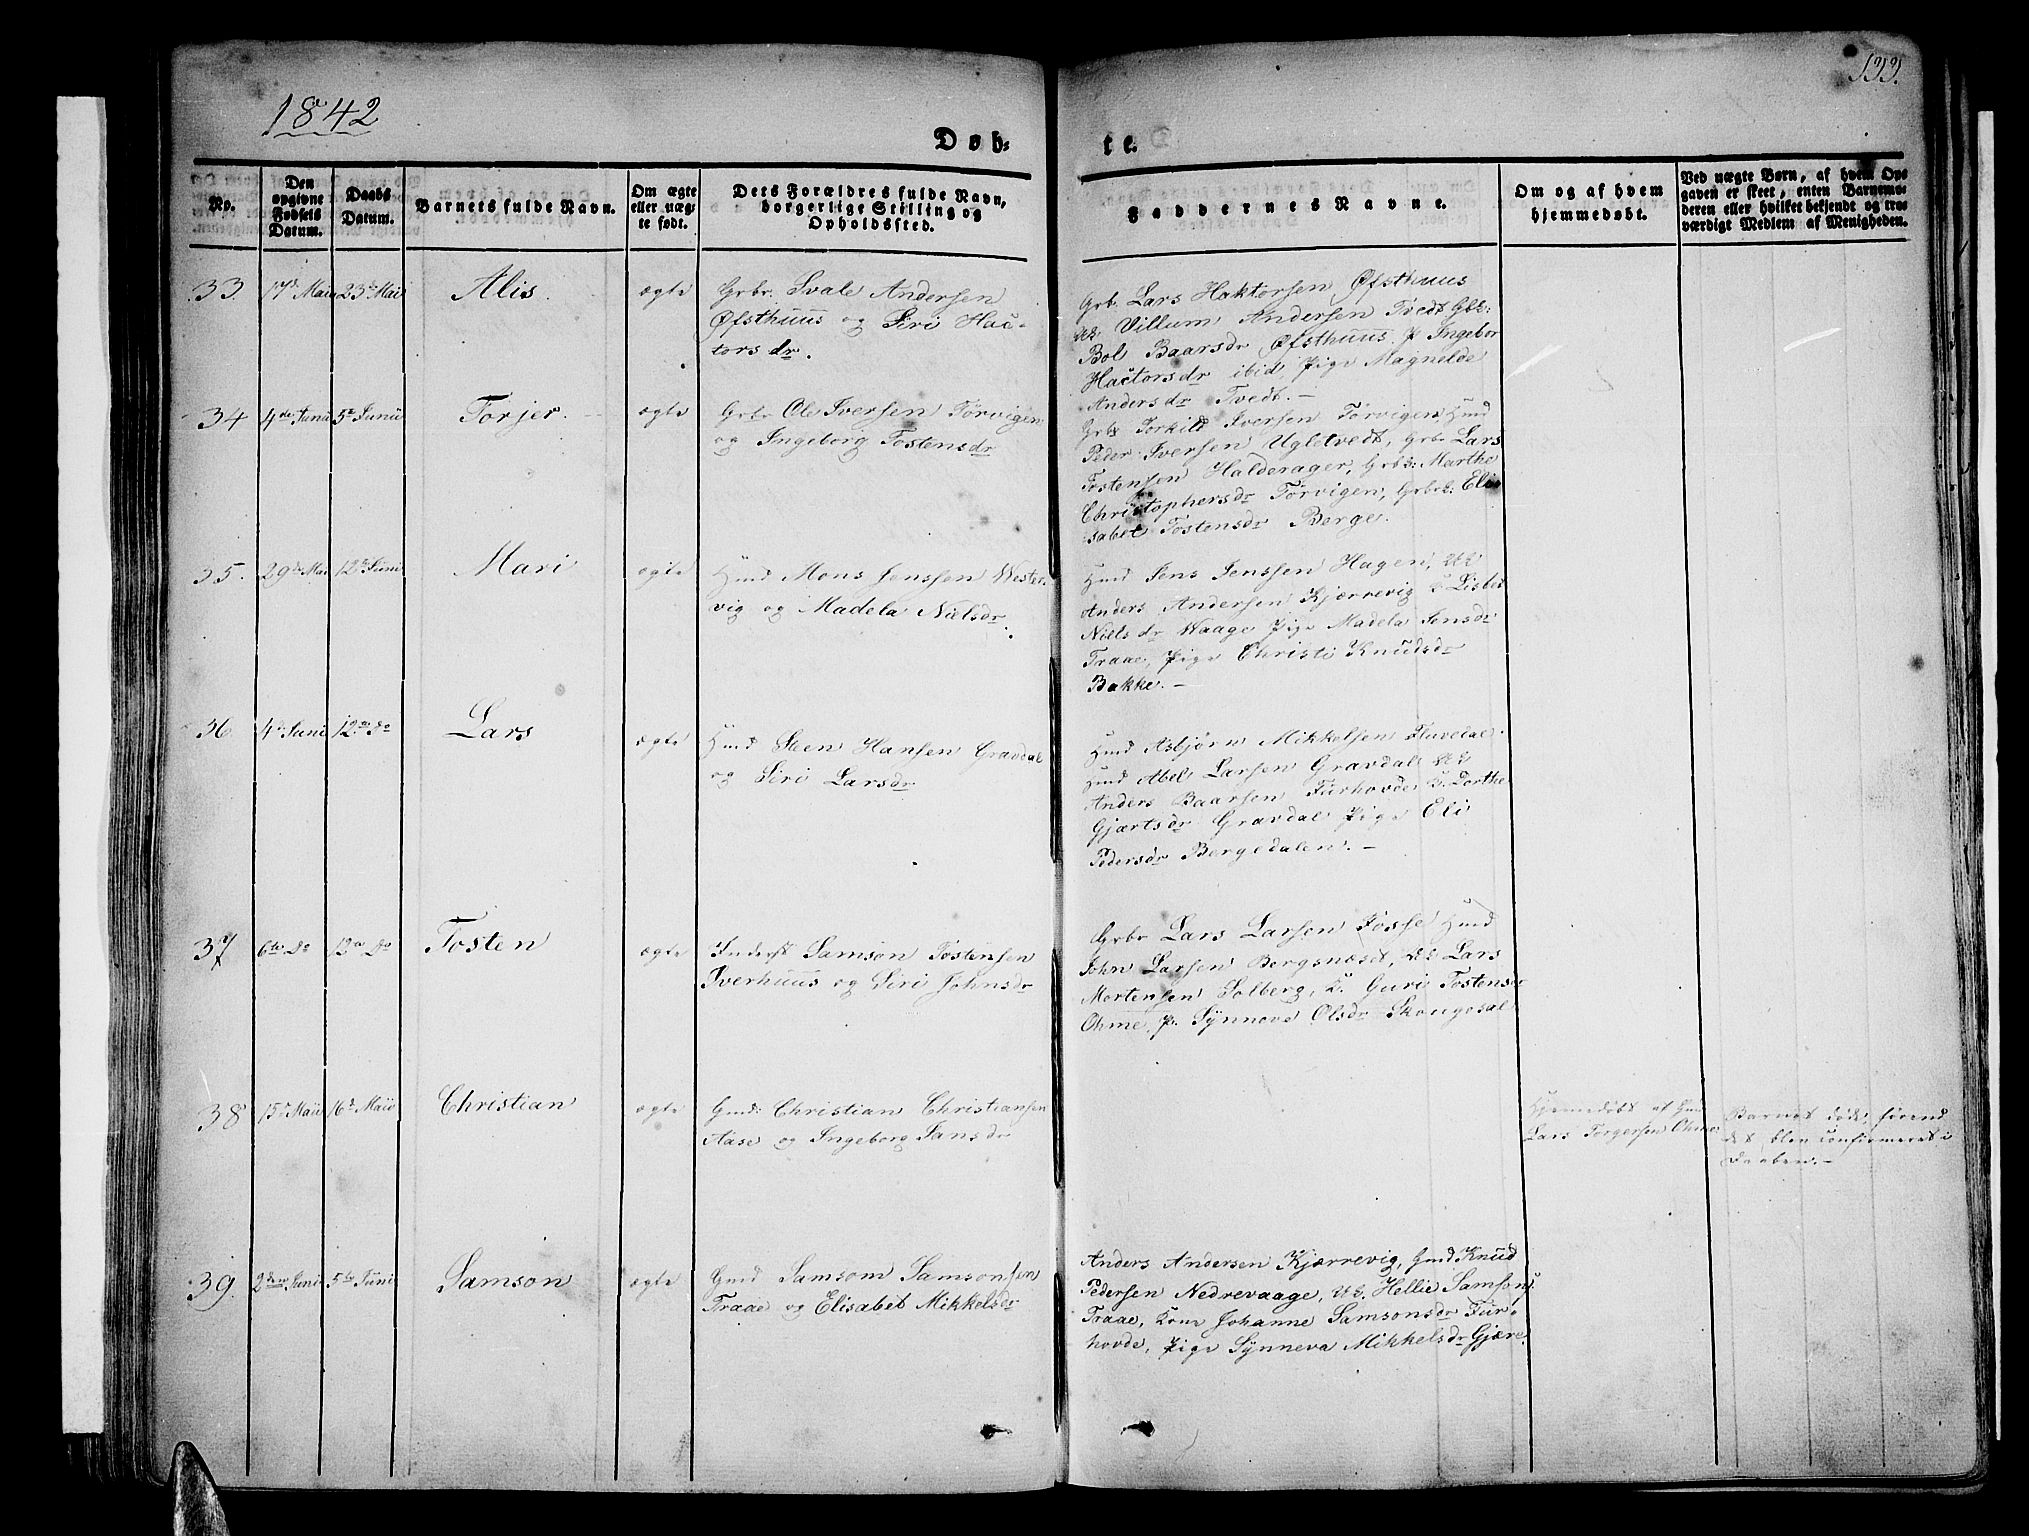 1842
133.
Døb-
te.
No.
Den opgivne Fødsels Datum.
Daabs Datum.
Barnets fulde Navn.
Om ægte eller uægte født.
Dets Forældres fulde Navn, borgerlige Stilling og Opholdssted.
Faddernes Navne.
Om og af hvem hjemmedøbt.
Ved uægte Børn, af hvem Opgaven er skeet, enten Barnemoderen eller hvilket bekjendt og troværdigt Medlem af Menigheden.
33. 17d Maii 23d Mai Alis. ægte
Grbr. Svale Andersen
Øfsthuus og Siri Hac-
tors dr.
Grb. Lars Haktorsen Øfsthuus
Villum Andersen Tvedt Gbk:
Bol Baarsdr Øfsthuus. P Ingebor
Hactorsdr ibid, Pige Magnelde
Andersdr Tvedt. —
34 4de Junii 5te Junii Torjer. ægte
Grbr Ole Iversen Törvigen
og Ingeborg Tostensdr
Grbr Torkild Iversen Törvigen, Hmd
Peder Iversen Ugletvedt, Grbr Lars
Tostensen Halderager, Grbk: Marthe
Christophersdr Törvigen, Grbk: Eli-
sabet Tostensdr Berge.
35. 29de Mai 12te Juni Mari ægte
Hmd Mons Jenssen Wester-
vig og Madela Nielsdr.
Hmd Jens Jenssen Hagen, UK
Anders Andersen Kjærrevig K Lisbet
Niels dr Waage Pige Madela Jensdr
Traae, Pige Christi Knudsdr
Bakke. —
36. 4de Juni 12te Do Lars ægte
Hmd Steen Hansen Gravdal
og Siri Larsdr
Hmd Asbjørn Mikkelsen Fluvedal.
Hmd Abel Larsen Gravdal UK
Anders Baarsen Furhovde K. Dorthe
Gjærtsdr Gravdal Pige Eli
Pedersdr Bergedalen. —
37 6te Do 12te Do Tosten ægte
Inderst Samson Tostensen
Iverhuus og Siri Johnsdr
Grbr Lars Larsen Fosse Hmd
John Larsen Bergsnæset, UK Lars
Mortensen Solberg, K. Guri Tostensdr
Ohme, P. Synneve Olsdr Skougesal
38 15de Maii 16de Maii Christian ægte
Gmd: Christian Christiansen
Aase og Ingeborg Jansdr
Hjemmedøbt af Gmd
Lars Torgersen Ohme
Barnet døde, førend
det blev confirmeret i
Daaben. —
39. 2den Juni 5te Juni Samson ægte
Gmd Samsom Samsonsen
Traae og Elisabet Mikkelsdr
Anders Andersen Kjærrevig, Gmd Knud
Pedersen Nedrevaage, UK. Hellie Samsons.
Traae, Kone Johanne Samsonsdr Fur-
hovde, Pige Synneva Mikkelsdr Gjære.